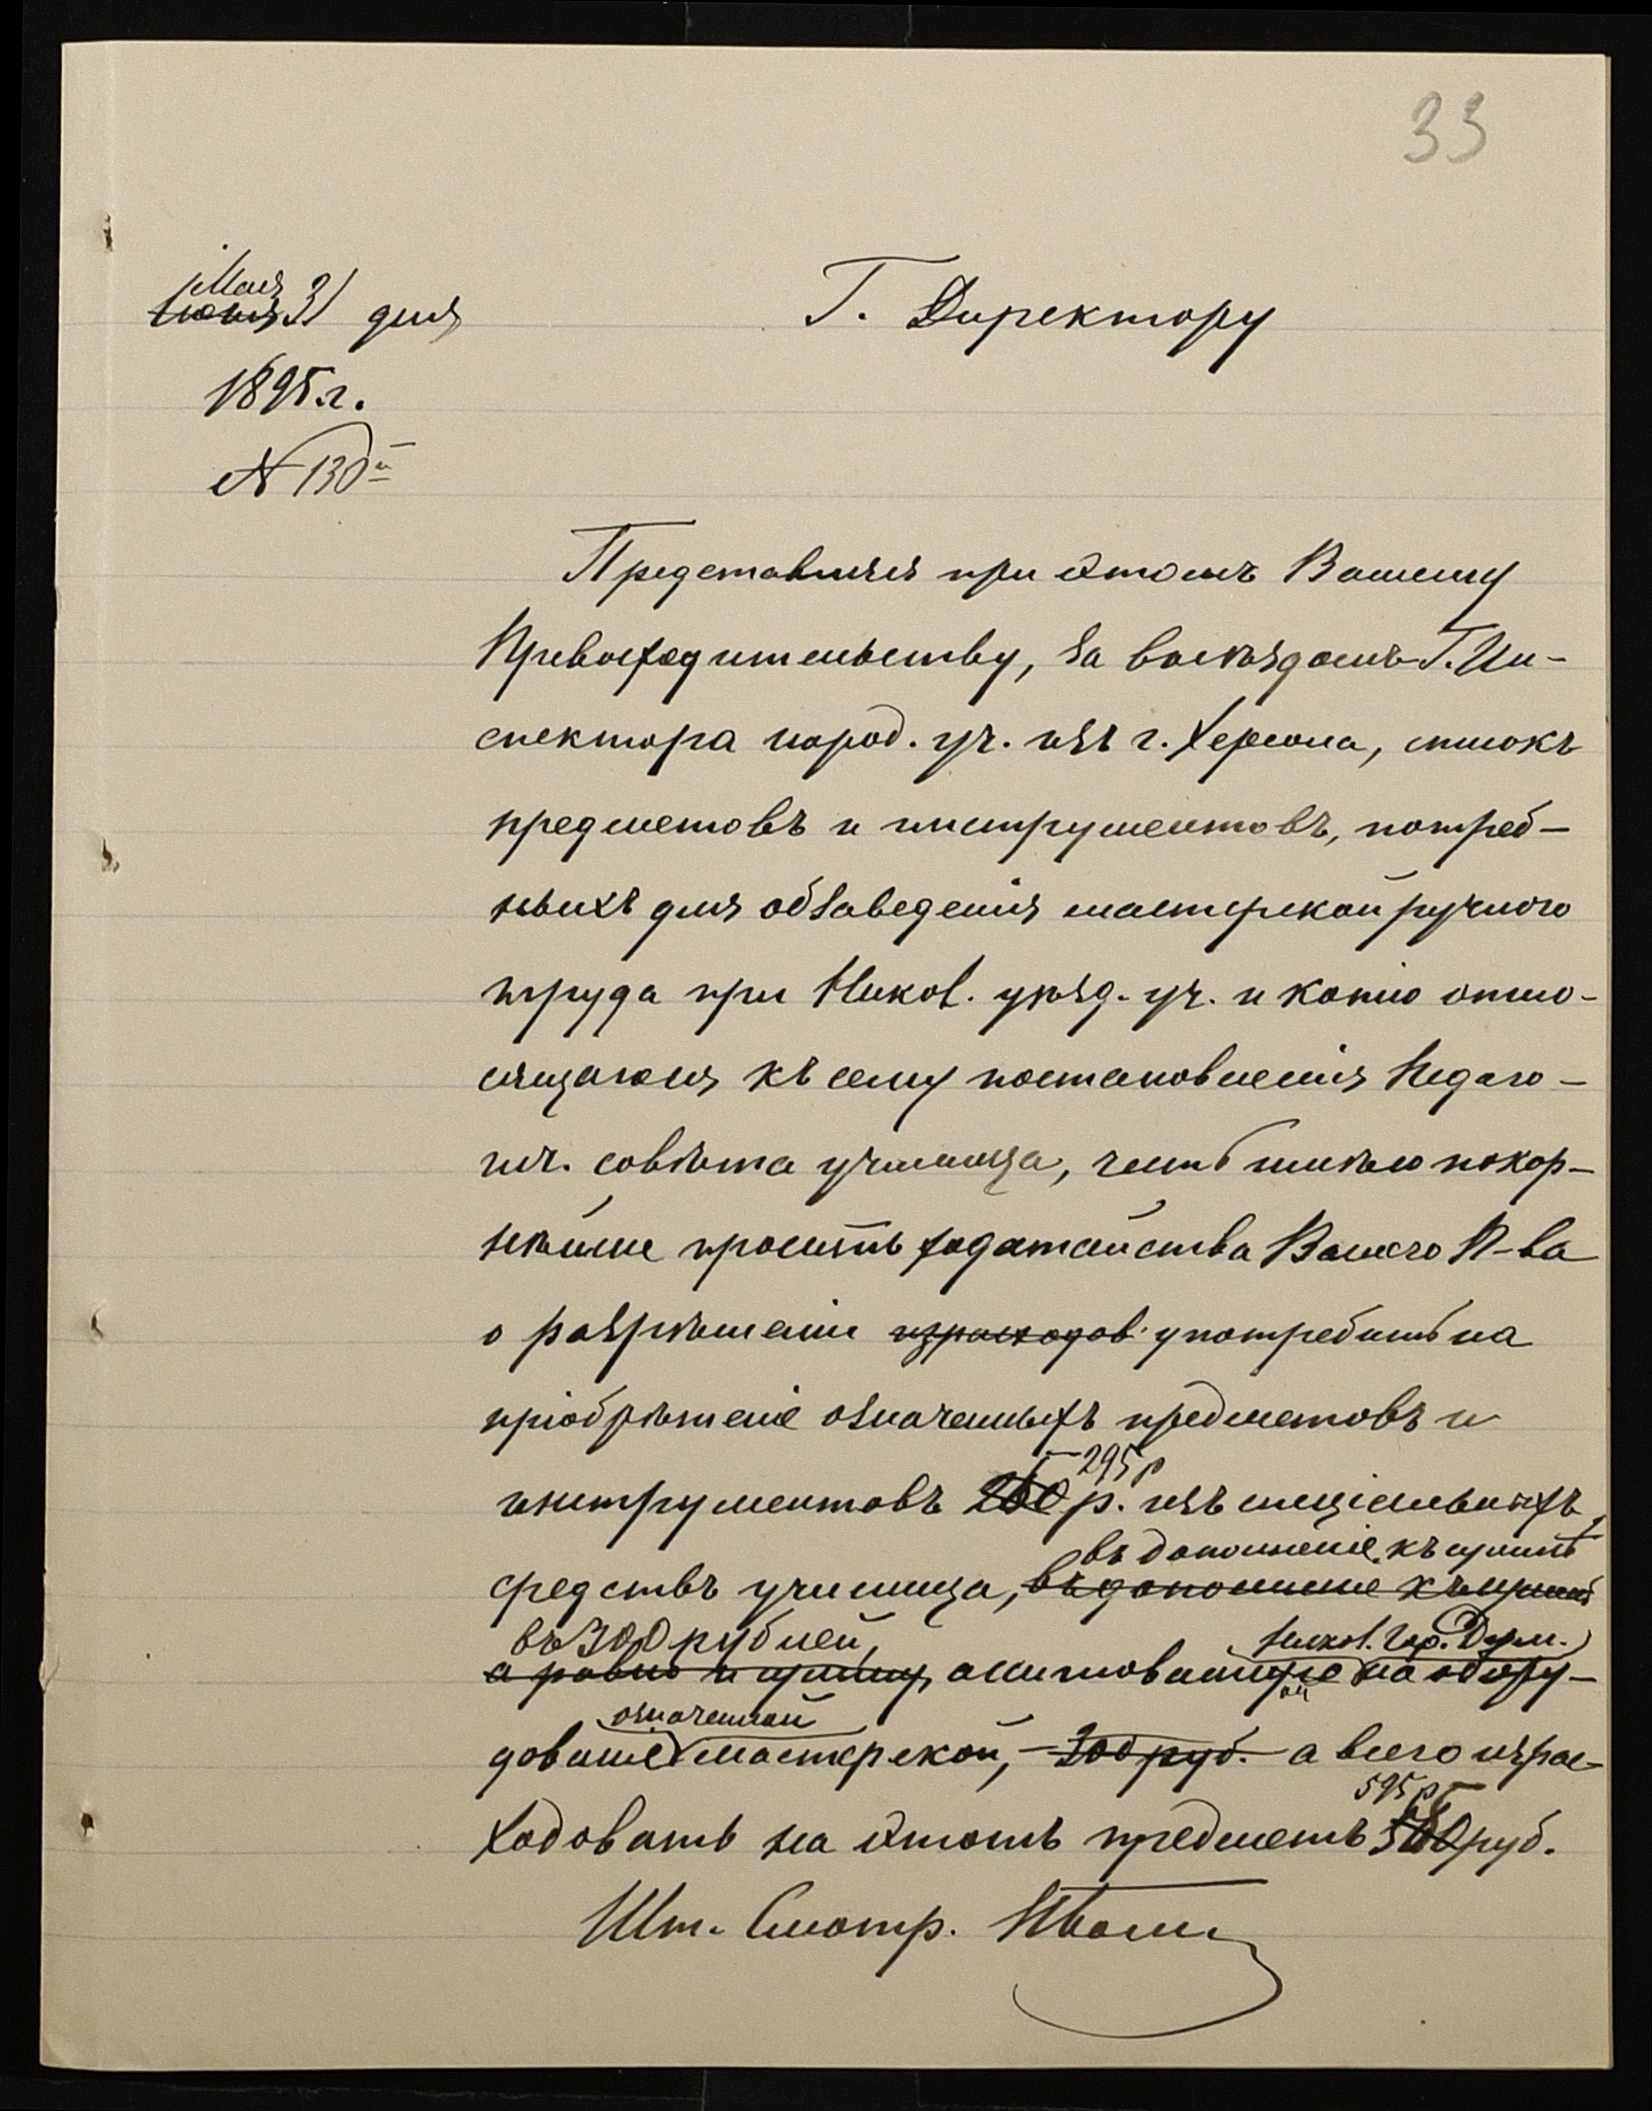 33
Мая
Июня 31 дня
1895 г.
№ 130й
Г. Директору
Представляя при этомъ Вашему
Превосходительству, за выѣздомъ Г. Ин-
спектора народ. уч. изъ г. Херсона, списокъ
предметовъ и инструментовъ, потреб-
ныхъ для обзаведенія мастерской ручного
труда при Никол. уѣзд. уч. и копію отно-
сящагося къ сему постановленія Педаго-
гич. совѣта училища, честь имѣю покор-
нѣйше просить ходатайства Вашего П-ва
о разрѣшеніи израсходов. употребить на
пріобрѣтеніе означенныхъ предметовъ и
295 р
инструментовъ 260 р. изъ спеціальныхъ
въ дополненіе къ суммѣ
средствъ училища, въ дополненіе къ суммѣ
въ 300 рублей, Никол. Гор. Дум.
а равно и сумму, ассигнованную на обору-
ой
означенной
дованіе мастерской, 300 руб. а всего израс-
595 р
ходовать на этотъ предметъ руб.
Шт. Смотр.